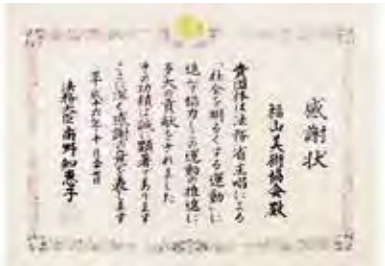 感謝状
福山美術協会殿
貴団体は法務省主唱による
「社会を明るくする運動」に
進んで協力しこの運動の推進に
多大の貢献をされました
その功績は誠に顕著であります
ここに深く感謝の意を表します
平成十六年十月
法務大臣南野知恵子